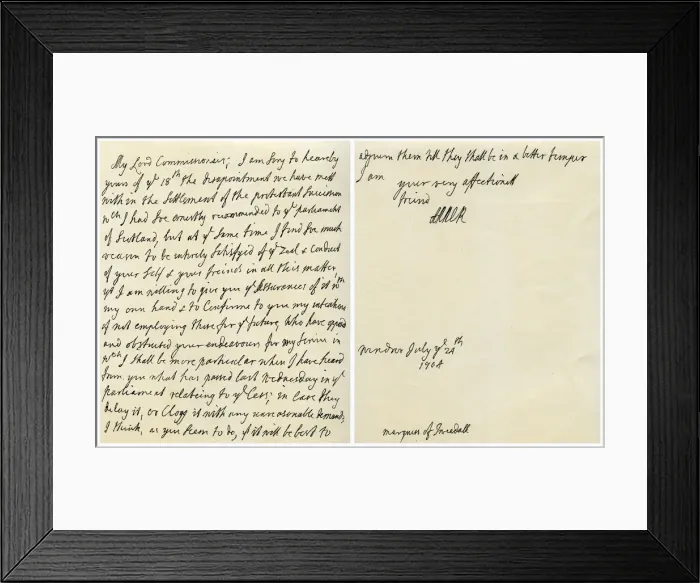 My Lord Commissioner; I am sory to heare by
yours of yᵉ 18ᵗʰ the disapointment we have mett
with in the Settlement of the protestant Succession
wᶜʰ I had soe earnestly recommended to yᵉ parliament
of Scotland, but at yᵉ same time I find soe much
reason to be entirely Satisfyed of yᵉ Zeal & Conduct
of your Self & your freinds in all this matter,
yᵗ I am willing to give you yᵉ Assurances of it wᵗʰ
my own hand & to Confirme to you my intentions
of not employing those for yᵉ future, who have opposed
and obstructed your endeavours for my service in
wᶜʰ I shall be more particular when I have heard
from you what has passed last Wednesday in yᵉ
parliament relateing to yᵉ Cess; in Case they
delay it, or Clogg it with any unreasonable demands,
I think, as you seem to do, yᵗ it will be best to
adjourn them till they shall be in a better temper
I am
your very affectionett
freind
ANNE R
Windsor July yᵉ 24ᵗʰ
1704
marquess of Tweedall